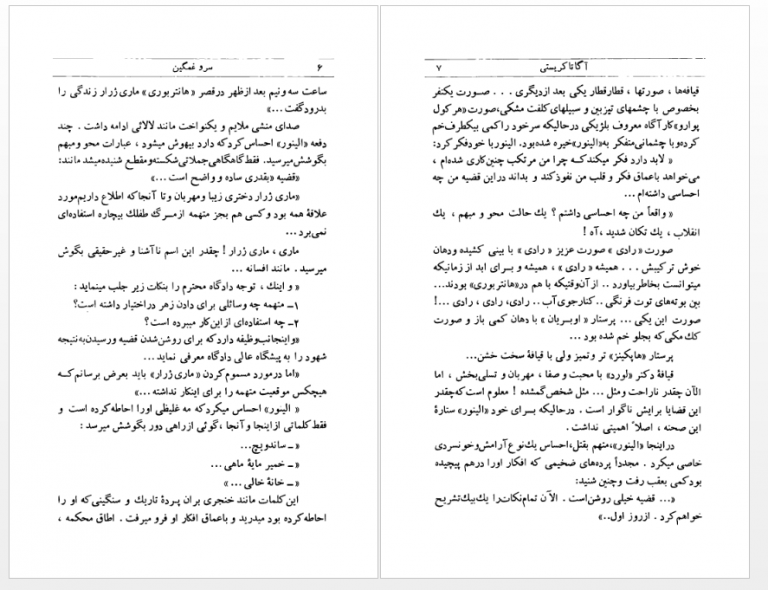 ۶ سرو غمگین
ساعت سه‌ونیم بعد ازظهر درقصر «هانتربوری» ماری ژرار زندگی را
بدرودگفت ...»
صدای منشی ملایم و یکنواخت مانند لالائی ادامه داشت . چند
دفعه «الینور» احساس کرد که دارد بیهوش میشود ، عبارات محو و مبهم
بگوشش میرسید. فقط گاهگاهی جملاتی شکسته و مقطع شنیده میشد مانند:
«قضیه «بقدری ساده و واضح است ...»
«ماری ژرار دختری زیبا و مهربان و تا آنجا که اطلاع داریم مورد
علاقهٔ همه بود و کسی هم بجز متهمه ازمرگ طفلك بیچاره استفاده‌ای
نمی‌برد ...
ماری ، ماری ژرار ! چقدر این اسم ناآشنا و غیرحقیقی بگوش
میرسید . مانند افسانه ...
« و اینك ، توجه دادگاه محترم را بنکات زیر جلب مینماید :
۱ــ متهمه چه وسائلی برای دادن زهر دراختیار داشته است؟
۲ــ چه استفاده‌ای از این کار میبرده است ؟
«واینجانب وظیفه دارد که برای روشن شدن قضیه ورسیدن به نتیجه
شهود را به پیشگاه عالی دادگاه معرفی نماید ...
«اما درمورد مسموم کردن «ماری ژرار» باید بعرض برسانم که
هیچکس موقعیت متهمه را برای اینکار نداشته ...»
« الینور» احساس میکرد که مه غلیظی اورا احاطه کرده است و
فقط کلماتی از اینجا و آنجا ،گوئی از راهی دور بگوشش میرسد :
«ــ ساندویچ...
«ــ خمیر مایهٔ ماهی ...
«ــ خانهٔ خالی ... »
این کلمات مانند خنجری بران پردهٔ تاریك و سنگینی که او را
احاطه کرده بود میدرید و باعماق افکار او فرو میرفت . اطاق محکمه ،
آگاتا کریستی ۷
قیافه‌ها ، صورتها ، قطارقطار یکی بعد ازدیگری . . . صورت یکنفر
بخصوص با چشمهای تیزبین و سبیلهای کلفت مشکی،صورت«هرکول
پوارو»کارآگاه معروف بلژیکی درحالیکه سرخود را کمی بیکطرف خم
کرده و با چشمانی متفکر به«الینور»خیره شده بود. الینور با خود فکر کرد:
« لابد دارد فکر میکند که چرا من مرتکب چنین کاری شده‌ام ،
می‌خواهد باعماق فکر و قلب من نفوذ کند و بداند دراین قضیه من چه
احساسی داشته‌ام ...
« واقعاً من چه احساسی داشتم ؟ یك حالت محو و مبهم ، یك
انقلاب ، یك تکان شدید ، آه !
صورت «رادی » صورت عزیز « رادی » با بینی کشیده و دهان
خوش ترکیبش . . . همیشه « رادی » ، همیشه و برای ابد از زمانیکه
میتوانست بخاطربیاورد .. از آنوقتیکه با هم در«هانتربوری» بودند....
بین بوته‌های توت فرنگی .. کنارجوی آب.. رادی، رادی، رادی ...!
صورت این یکی ... پرستار « اوبریان » با دهان کمی باز و صورت
كك مکی که بجلو خم شده بود ...
پرستار «هاپکینز» تر و تمیز ولی با قیافهٔ سخت خشن...
قیافهٔ دکتر «لورد» با محبت و صفا ، مهربان و تسلی بخش ، اما
الآن چقدر ناراحت ومثل ... مثل شخص گمشده ! معلوم است که چقدر
این قضایا برایش ناگوار است . درحالیکه برای خود «الینور» ستارهٔ
این صحنه ، اصلاً اهمیتی نداشت .
دراینجا «الینور»،متهم بقتل،احساس یك نوع آرامش وخونسردی
خاصی میکرد . مجدداً پرده‌های ضخیمی که افکار اورا درهم پیچیده
بود کمی بعقب رفت و چنین شنید:
«... قضیه خیلی روشن است . الآن تمام نکات را یك بیك تشریح
خواهم کرد . ازروز اول..»